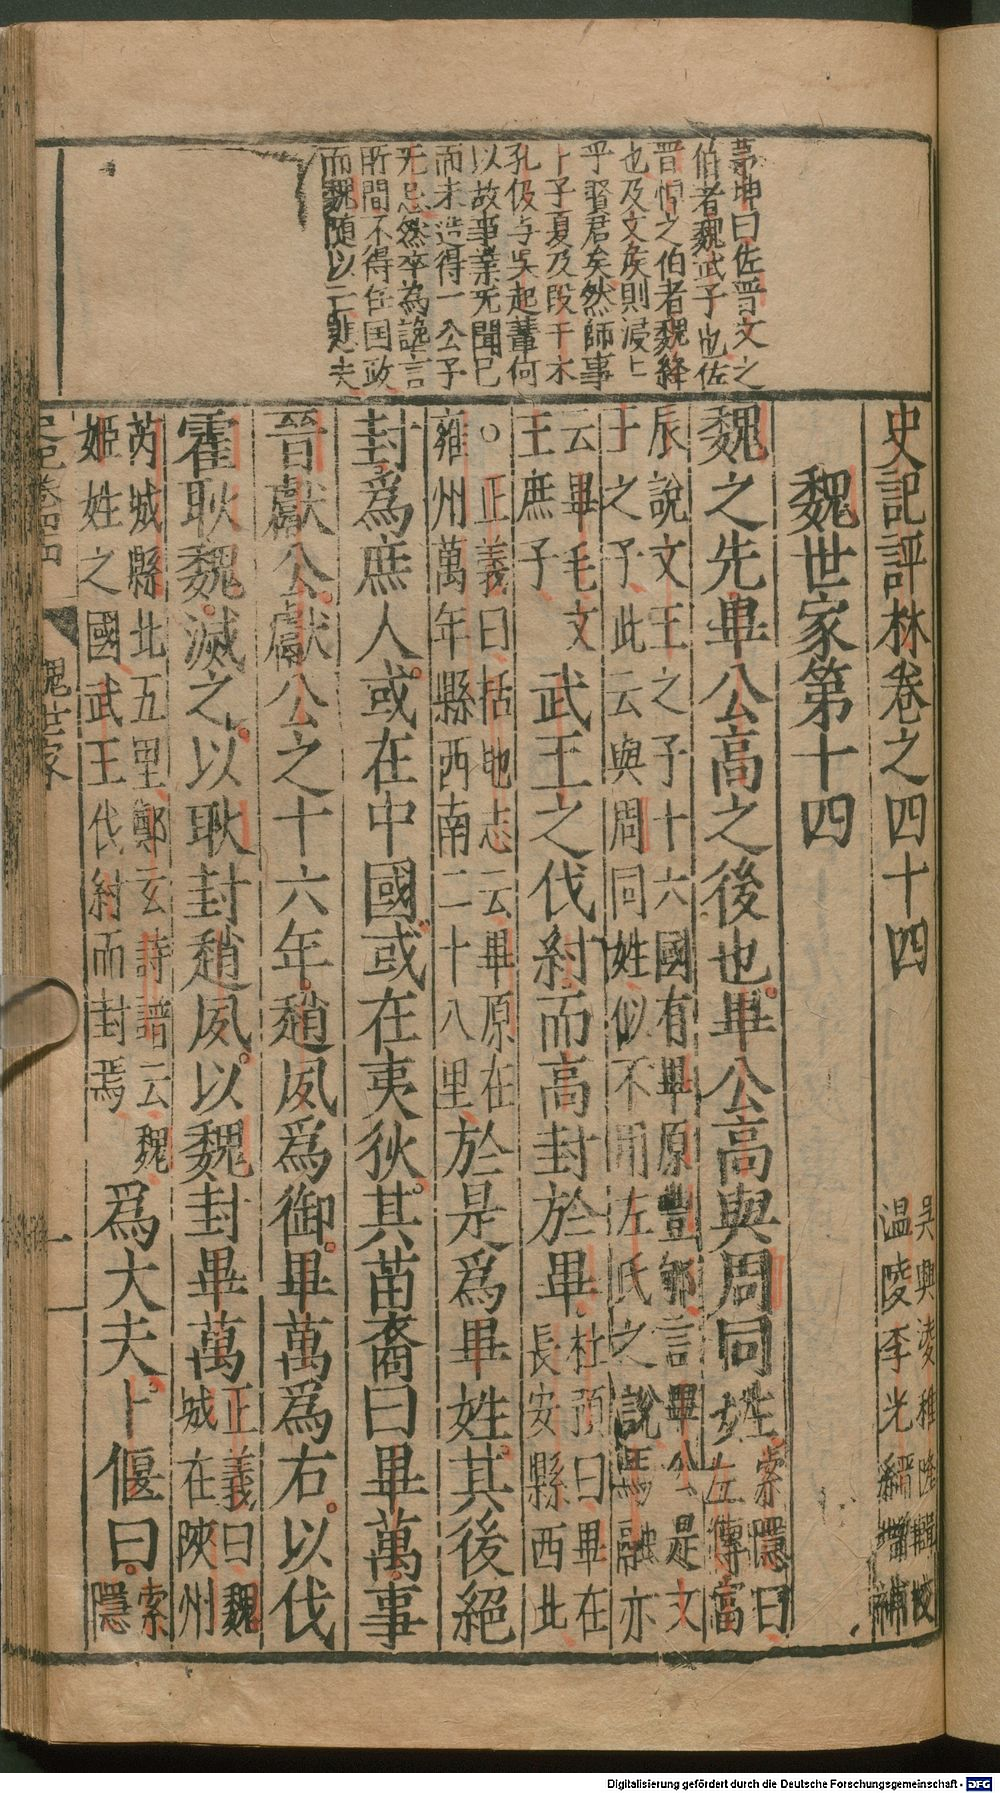 史記評林卷之四十四
吳興凌稚隆輯校
温陵李光縉增補
魏世家第十四
魏之先畢公高之後也畢公高與周同姓
索隱曰
左傳富
辰說文王之子十六國有畢原豐郇言畢公是文
王之子此云與周同姓似不用左氏之說馬融亦
云畢毛文
王庶子
武王之伐紂而高封於畢
杜預曰畢在
長安縣西北
○正義曰括地志云畢原在
雍州萬年縣西南二十八里
於是爲畢姓其後絕
封爲庶人或在中國或在夷狄其苗裔曰畢萬事
晉獻公獻公之十六年趙夙爲御畢萬爲右以伐
霍耿魏滅之以耿封趙夙以魏封畢萬
正義曰魏
城在陝州
芮城縣北五里鄭玄詩譜云魏
姬姓之國武王伐紂而封焉
爲大夫卜偃曰
索
隱
茅坤曰佐晉文之
伯者魏武子也佐
晉悼之伯者魏絳
也及文矦則浸上
乎賢君矣然師事
卜子夏及段干木
孔伋与吳起輩何
以故事業无聞已
而未造得一公子
无忌然卒為讒言
所間不得任囯政
而魏随以亡悲夫
史記卷四十四
魏世家
一
Digitalisierung gefördert durch die Deutsche Forschungsgemeinschaft - DFG